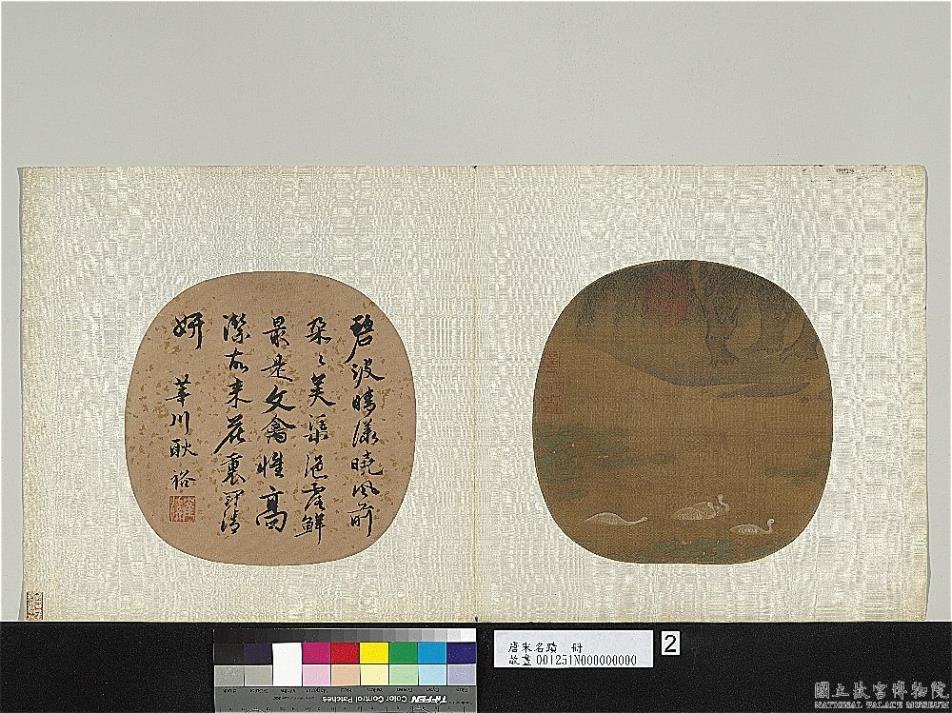 碧波晴漾曉風前
朶〻芙渠浥露鮮
最是文禽惟高
潔故来花裏鬪清
妍
華川耿裕
唐宋名蹟 冊
故畫001251N000000000
2
TIFFEN Color Control Patches
國立故宮博物院
NATIONAL PALACE MUSEUM